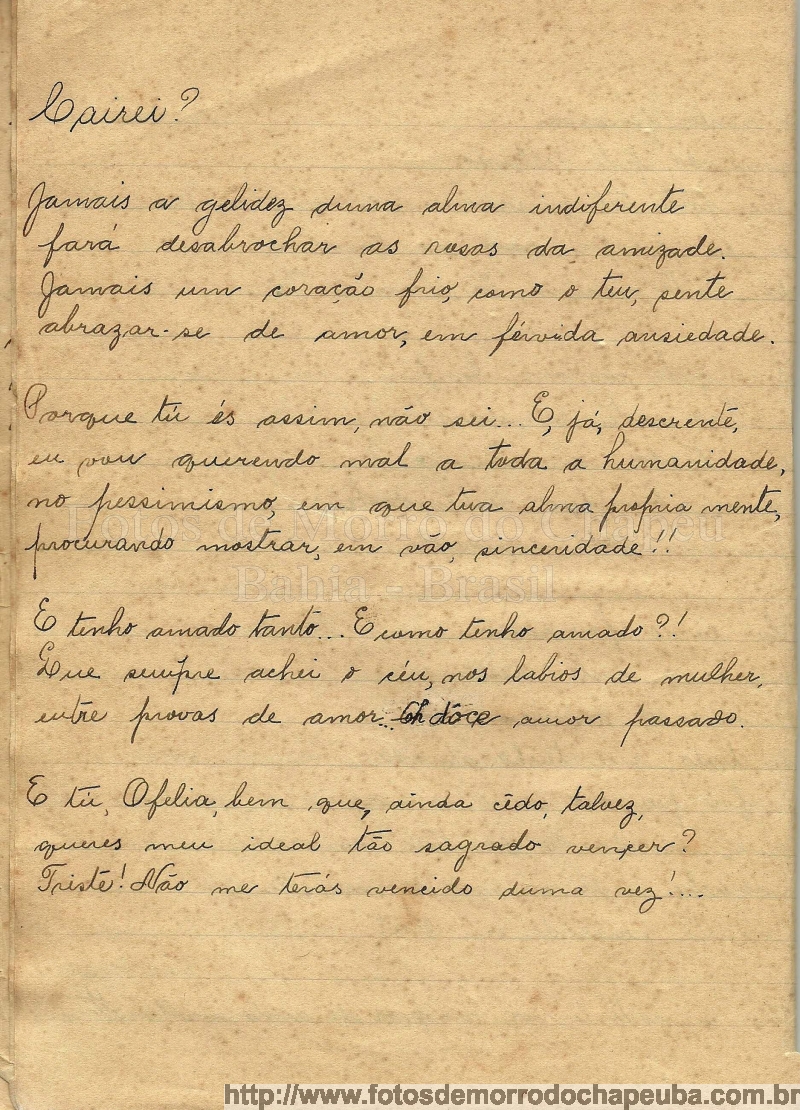 Cairei?
Jamais a gelidez duma alma indiferente
fará desabrochar as rosas da amizade.
Jamais um coração frio, como o teu, sente
abrazar-se de amor, em férvida ansiedade.
Porque tú és assim, não sei... E, já, descrente,
eu vou querendo mal a toda a humanidade,
no pessimismo, em que tua alma propria mente,
procurando mostrar, em vão, sinceridade!!
E tenho amado tanto... E como tenho amado?!
Que sempre achei o céu, nos labios de mulher,
entre provas de amor... Oh dôce amor passado.
E tú, Ofelia, bem que, ainda cêdo, talvez,
queres meu ideal tão sagrado vençer?
Triste! Não me terás vencido duma vez!...
Fotos de Morro do Chapéu
Bahia - Brasil
http://www.fotosdemorrodochapeuba.com.br